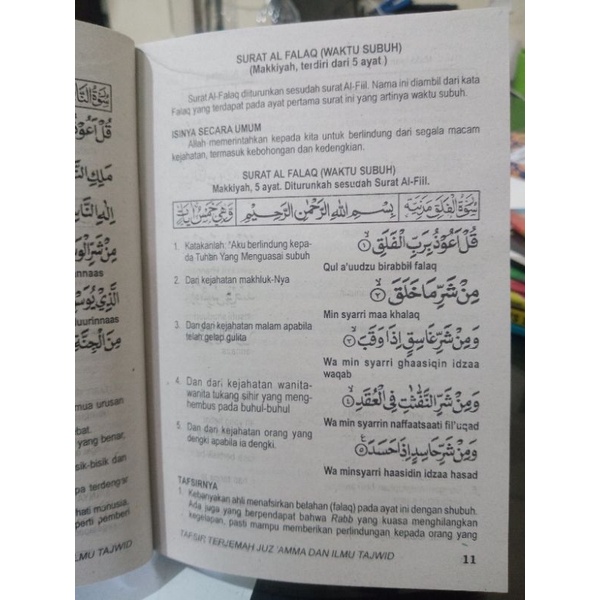 SURAT AL FALAQ (WAKTU SUBUH)
(Makkiyah, terdiri dari 5 ayat)
Surat Al-Falaq diturunkan sesudah surat Al-Fiil. Nama ini diambil dari kata
Falaq yang terdapat pada ayat pertama surat ini yang artinya waktu subuh.
ISINYA SECARA UMUM
Allah memerintahkan kepada kita untuk berlindung dari segala macam
kejahatan, termasuk kebohongan dan kedengkian.
SURAT AL FALAQ (WAKTU SUBUH)
Makkiyah, 5 ayat. Diturunkah sesudah Surat Al-Fiil.
بِسْمِ اللهِ الرَّحْمٰنِ الرَّحِيْمِ
1. Katakanlah: "Aku berlindung kepa-
da Tuhan Yang Menguasai subuh
قُلْ اَعُوْذُ بِرَبِّ الْفَلَقِ ۝١
Qul a'uudzu birabbil falaq
2. Dari kejahatan makhluk-Nya
مِنْ شَرِّ مَا خَلَقَ ۝٢
Min syarri maa khalaq
3. Dan dari kejahatan malam apabila
telah gelap gulita
وَمِنْ شَرِّ غَاسِقٍ اِذَا وَقَبَ ۝٣
Wa min syarri ghaasiqin idzaa
waqab
4. Dan dari kejahatan wanita-
wanita tukang sihir yang meng-
hembus pada buhul-buhul
وَمِنْ شَرِّ النَّفّٰثٰتِ فِى الْعُقَدِ ۝٤
Wa min syarrin naffaatsaati fil'uqad
5. Dan dari kejahatan orang yang
dengki apabila ia dengki.
وَمِنْ شَرِّ حَاسِدٍ اِذَا حَسَدَ ۝٥
Wa minsyarri haasidin idzaa hasad
TAFSIRNYA
1. Kebanyakan ahli menafsirkan belahan (falaq) pada ayat ini dengan shubuh.
Ada juga yang berpendapat bahwa Rabb yang kuasa menghilangkan
kegelapan, pasti mampu memberikan perlindungan kepada orang yang
TAFSIR TERJEMAH JUZ 'AMMA DAN ILMU TAJWID
11